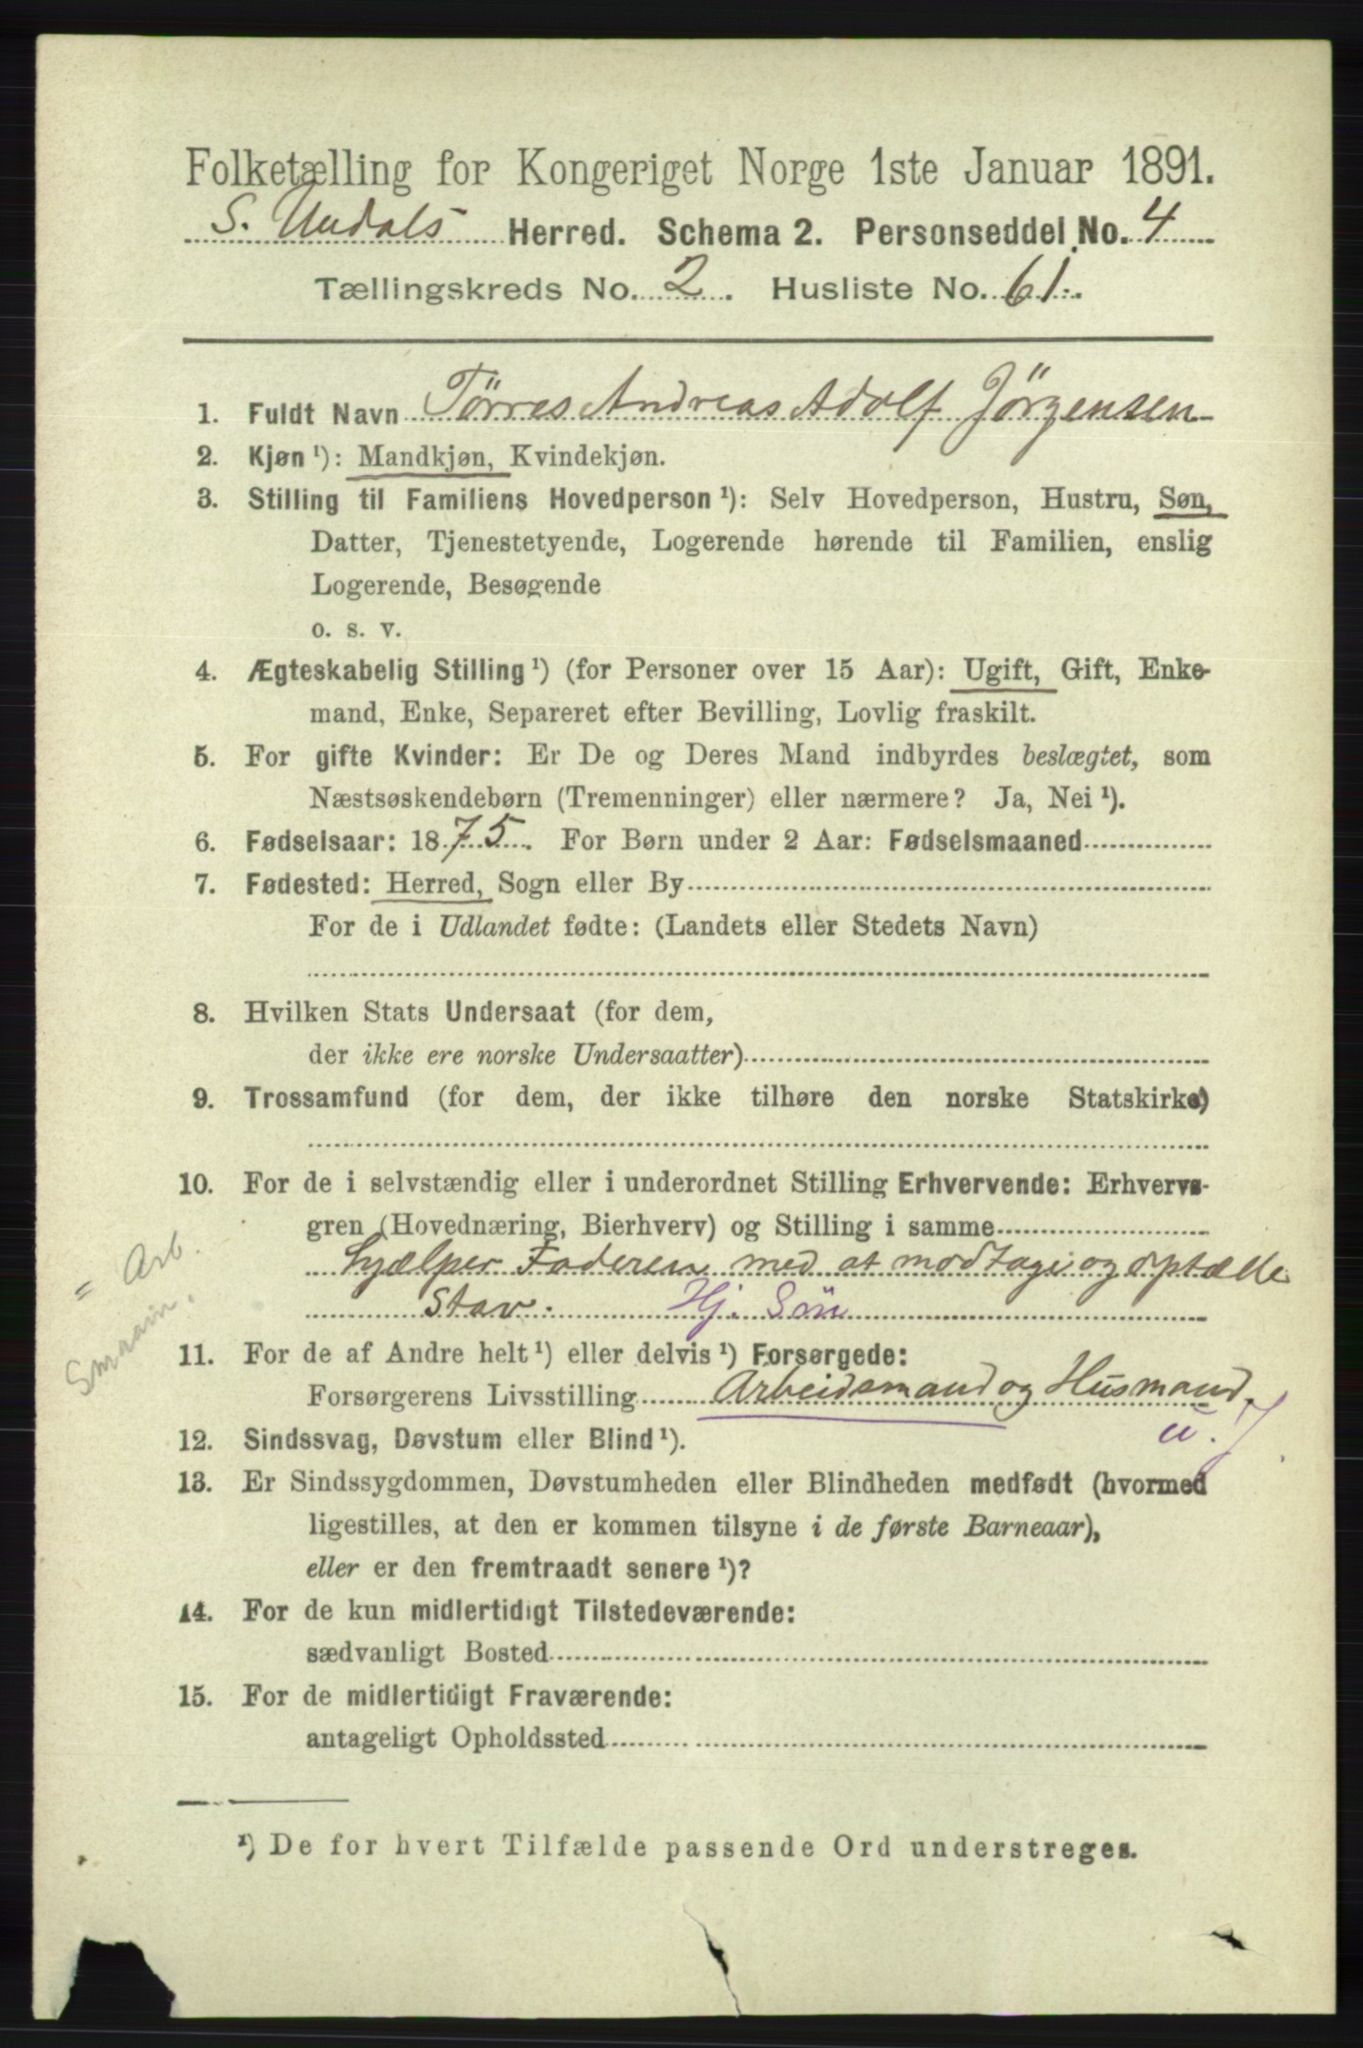 Folketælling for Kongeriget Norge 1ste Januar 1891.
S. Undals Herred. Schema 2. Personseddel No. 4
Tællingskreds No. 2. Husliste No. 61.
1. Fuldt Navn Tørres Andreas Adolf Jörgensen
2. Kjøn ¹): Mandkjøn, Kvindekjøn.
3. Stilling til Familiens Hovedperson ¹): Selv Hovedperson, Hustru, Søn,
Datter, Tjenestetyende, Logerende hørende til Familien, enslig
Logerende, Besøgende
o. s. v.
4. Ægteskabelig Stilling ¹) (for Personer over 15 Aar): Ugift, Gift, Enke-
mand, Enke, Separeret efter Bevilling, Lovlig fraskilt.
5. For gifte Kvinder: Er De og Deres Mand indbyrdes beslægtet, som
Næstsøskendebørn (Tremenninger) eller nærmere? Ja, Nei ¹).
6. Fødselsaar: 1875. For Børn under 2 Aar: Fødselsmaaned
7. Fødested: Herred, Sogn eller By
For de i Udlandet fødte: (Landets eller Stedets Navn)
8. Hvilken Stats Undersaat (for dem,
der ikke ere norske Undersaatter)
9. Trossamfund (for dem, der ikke tilhøre den norske Statskirke)
10. For de i selvstændig eller i underordnet Stilling Erhvervende: Erhvervs-
gren (Hovednæring, Bierhverv) og Stilling i samme
hjælper Faderen med at modtage og optælle
Stav. Hj. Søn
= Arb.
11. For de af Andre helt ¹) eller delvis ¹) Forsørgede:
Forsørgerens Livsstilling Arbeidsmand og Husmand.
u. J
12. Sindssvag, Døvstum eller Blind ¹).
13. Er Sindssygdommen, Døvstumheden eller Blindheden medfødt (hvormed
ligestilles, at den er kommen tilsyne i de første Barneaar),
eller er den fremtraadt senere ¹)?
14. For de kun midlertidigt Tilstedeværende:
sædvanligt Bosted
15. For de midlertidigt Fraværende:
antageligt Opholdssted
¹) De for hvert Tilfælde passende Ord understreges.